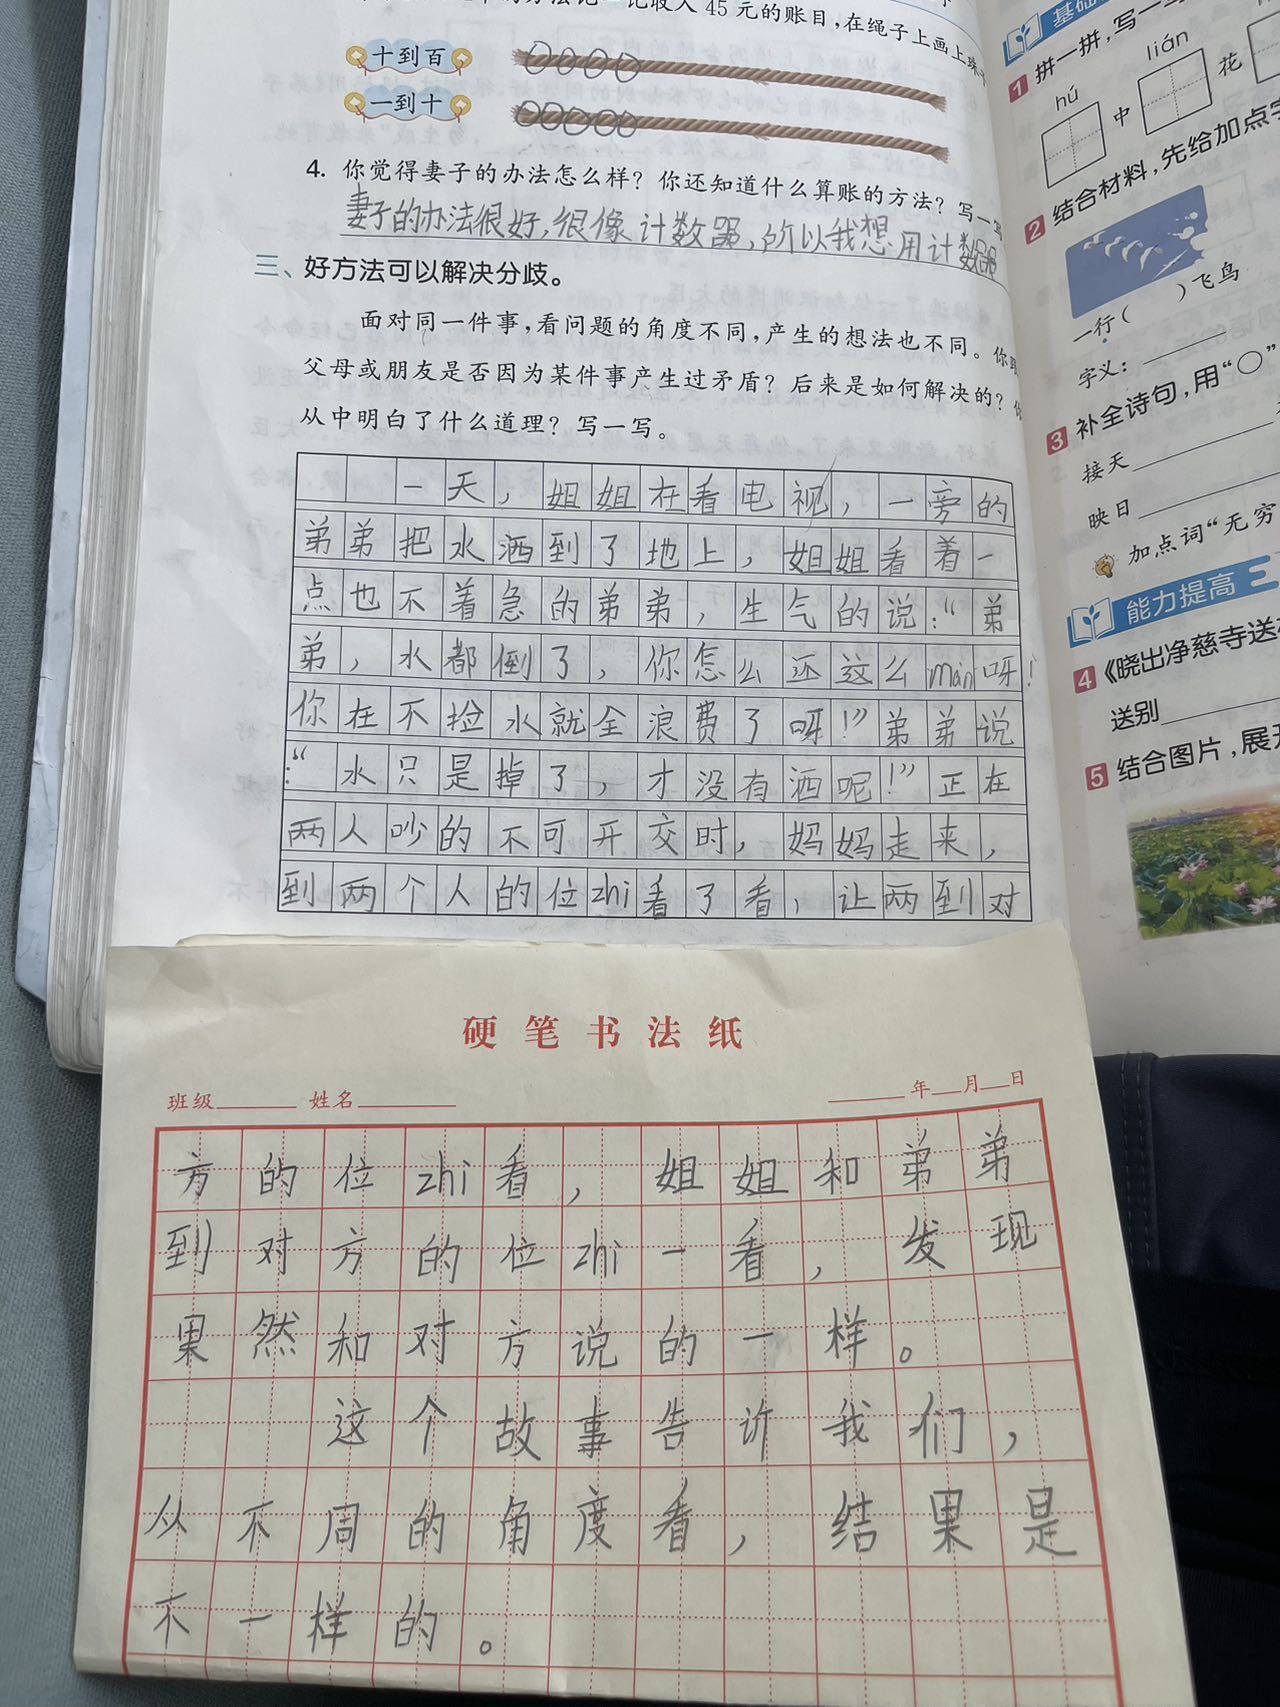 记收入45元的账目，在绳子上画上珠
十到百
一到十
4. 你觉得妻子的办法怎么样？你还知道什么算账的方法？写一写
妻子的办法很好，很像计数器，所以我想用计数器
三、好方法可以解决分歧。
面对同一件事，看问题的角度不同，产生的想法也不同。你
父母或朋友是否因为某件事产生过矛盾？后来是如何解决的？
从中明白了什么道理？写一写。
一天，姐姐在看电视，一旁的
弟弟把水洒到了地上，姐姐看着一
点也不着急的弟弟，生气的说：“弟
弟，水都倒了，你怎么还这么màn呀！
你在不捡水就全浪费了呀！”弟弟说
：“水只是掉了，才没有洒呢！”正在
两人吵的不可开交时，妈妈走来，
到两个人的位zhi看了看，让两到对
硬笔书法纸
班级 姓名 年 月 日
方的位zhi看，姐姐和弟弟
到对方的位zhi一看，发现
果然和对方说的一样。
这个故事告诉我们，
从不周的角度看，结果是
不一样的。
基础
1 拼一拼，写一写
hú lián
中 花
2 结合材料，先给加点字
一行( )飞鸟
字义：
3 补全诗句，用“○”
接天
映日
加点词“无穷
能力提高
4 《晓出净慈寺送
送别
5 结合图片，展开